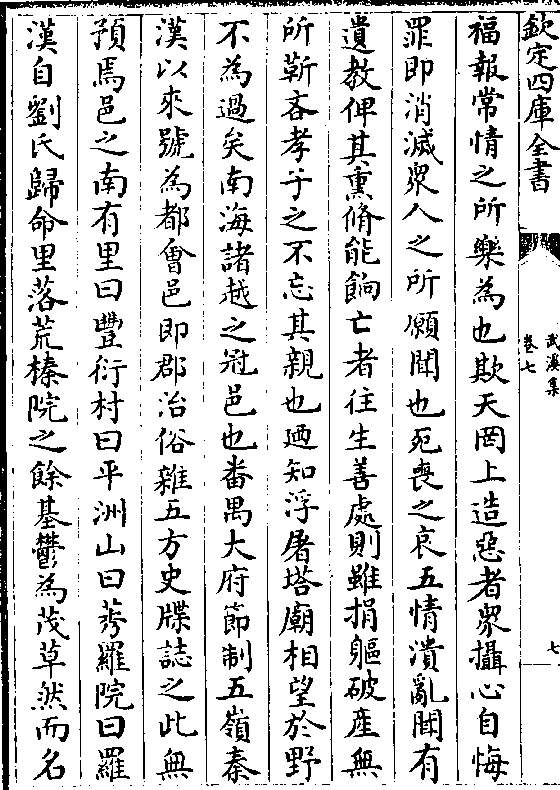 欽定四庫全書
武溪集
卷七
七
福報常情之所樂為也欺天罔上造惡者衆攝心自悔
罪即消滅衆人之所願聞也死喪之哀五情潰亂聞有
遺教俾其熏脩能餉亡者往生善處則雖捐軀破產無
所靳吝孝子之不忘其親也迺知浮屠塔廟相望於野
不為過矣南海諸越之冠邑也畨禺大府節制五嶺秦
漢以來號為都會邑即郡治俗雜五方史牒誌之此無
預焉邑之南有里曰豐衍村曰平洲山曰萼羅院曰羅
漢自劉氏歸命里落荒榛院之餘基鬱為茂草然而名